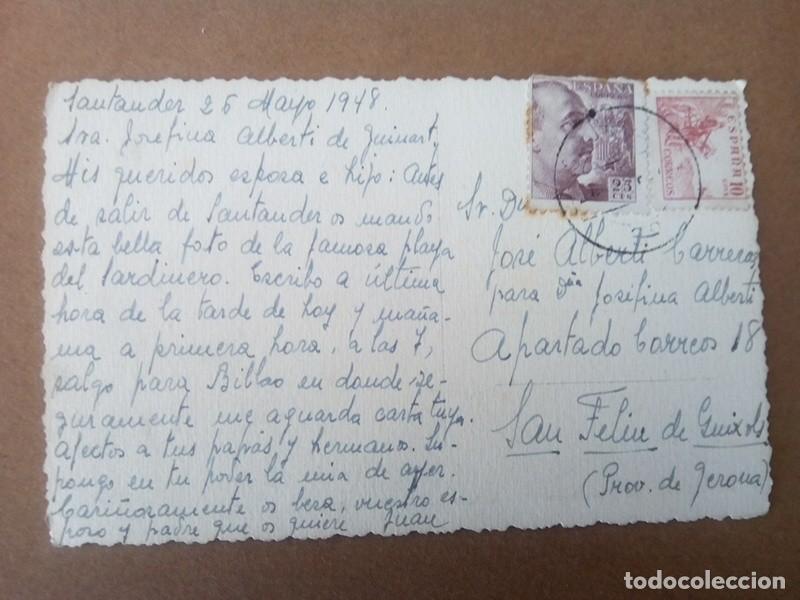 Santander 25 Mayo 1948.
Sra. Josefina Alberti de Guinart,
Mis queridos esposa e hijo: Antes
de salir de Santander os mando
esta bella foto de la famosa playa
del Sardinero. Escribo a última
hora de la tarde de hoy y maña-
na a primera hora, a las 7,
salgo para Bilbao en donde se-
guramente me aguarda carta tuya.
Afectos a tus papás y hermanos. Su-
pongo en tu poder la mia de ayer.
Cariñosamente os besa, vuestro es-
poso y padre que os quiere Juan
ESPAÑA
25
CTS
ESPAÑA
CORREOS
10
CTS
Sr. Dn
José Alberti Carreras
para Dña Josefina Alberti
Apartado Correos 18
San Feliu de Guixols
(Prov. de Gerona)
todocoleccion
todocoleccion.net